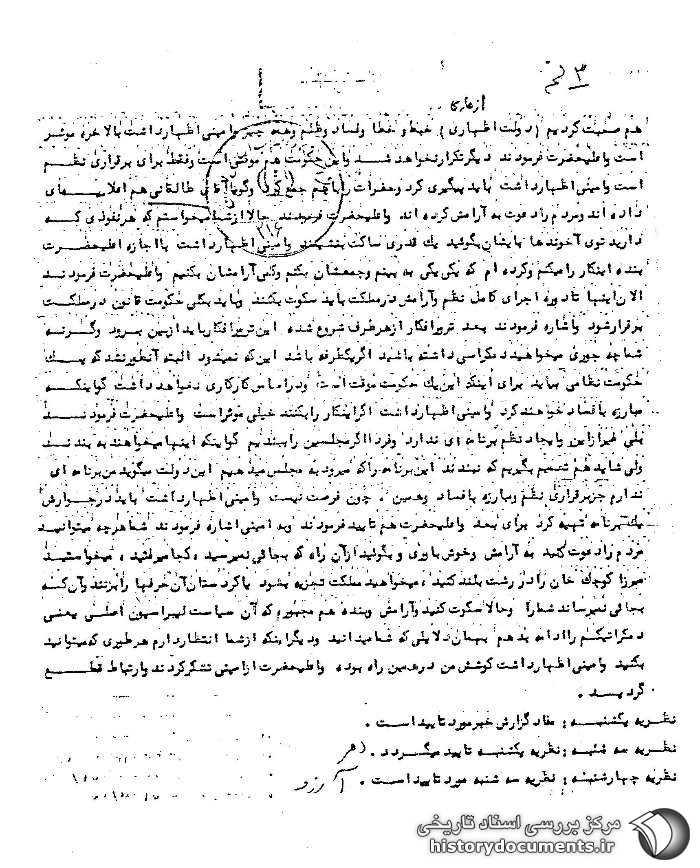 ۳
ازهاری
هم صحبت کردیم (دولت ازهاری) خبط و خطا وفساد وظلم وهمه چیز وامینی اظهارداشت بالاخره موثر
است واعلیحضرت فرمودند دیگرتکرارنخواهد شد واین حکومت هم موقتی است وفقط برای برقراری نظم
است وامینی اظهارداشت باید پیگیری کرد وحضرات راباهم جمع کرد وگویا آقای طالقانی هم اعلامیه‌ای
داده اند ومردم رادعوت به آرامش کرده اند واعلیحضرت فرمودند حالا ازشما میخواستم که هرنفوذی که
دارید توی آخوندها بایشان بگوئید یك قدری ساکت بنشینند وامینی اظهارداشت بااجازه اعلیحضرت
بنده اینکار رامیکنم وکرده ام که یکی یکی به بینم وجمعشان بکنم وکمی آرامشان بکنیم واعلیحضرت فرمودند
الان اینها تادوره اجرای کامل نظم وآرامش درمملکت باید سکوت بکنند وباید بکلی حکومت قانون درمملکت
برقرارشود واشاره فرمودند بعد تروریرافکار ازهرطرف شروع شده این ترورافکارباید ازبین برود وگرنه
شما چه جوری میخواهید دمکراسی داشته باشید اگریکطرفه باشد این که نمیشود البته آنطورنشد که یك
حکومت نظامی بیاید برای اینکه این یك حکومت موقت است ودراساس کارکاری نخواهد داشت گواینکه
مبارزه بافساد خواهند کرد وامینی اظهارداشت اگراینکار رابکنند خیلی موثراست واعلیحضرت فرمودند
بلی غیرازاین وایجاد نظم برنامه ای ندارد وفردا اگرمجلسین راببندیم گواینکه اینها میخواهند به بندند
ولی شاید هم تصمیم بگیریم که نبندند این برنامه راکه میرود به مجلس میدهیم این دولت میگوید من برنامه ای
ندارم جزبرقراری نظم ومبارزه بافساد وهمین ، چون فرصت نیست وامینی اظهارداشت باید درجوارش
یك برنامه تهیه کرد برای بعد واعلیحضرت هم تایید فرمودند وبه امینی اشاره فرمودند شماهرچه میتوانید
مردم رادعوت کنید به آرامش وخوش باوری وبگوئید ازآن راه که بجائی نمیرسید ، کجا میرفتید ، میخواستید
میرزا کوچك خان رادر رشت بلند کنید ، میخواهید مملکت تجزیه بشود یاکردستان آن حرفها رابزنند وآن که
بجائی نمیرساند شمارا وحالا سکوت کنید وآرامش وبنده هم مجبورم که آن سیاست لیبراسیون اصلی یعنی
دمکراتیکم راادامه بدهم بهمان دلایلی که شما میدانید ودیگراینکه ازشما انتظاردارم هرطوری که میتوانید
بکنید وامینی اظهارداشت کوشش من درهمین راه بوده واعلیحضرت ازامینی تشکرکردند وارتباط قطع
گردید .
نظریه یکشنبه : مفاد گزارش خبرمورد تایید است .
نظریه سه شنبه : نظریه یکشنبه تایید میگردد .
نظریه چهارشنبه : نظریه سه شنبه مورد تایید است . آرزو
مرکز بررسی اسناد تاریخی
historydocuments.ir